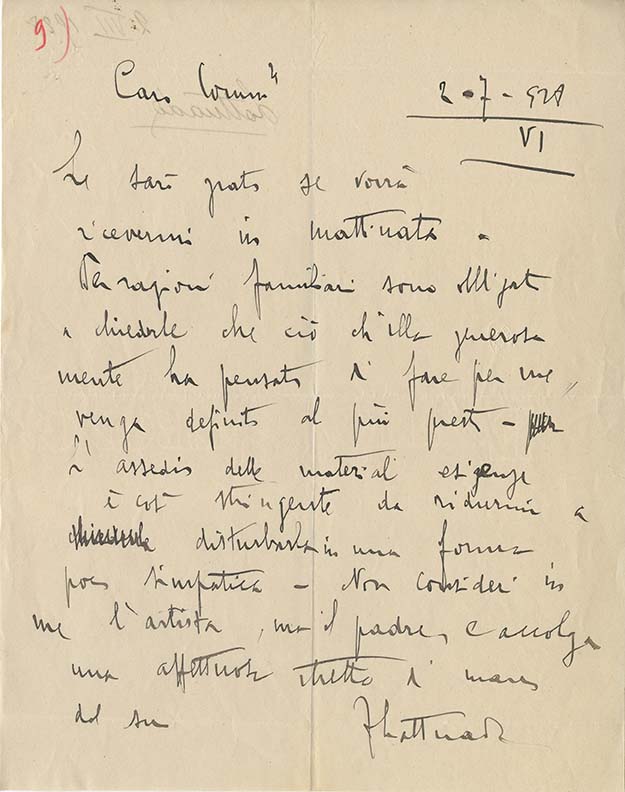 9)
Caro Comm.r
2-7-928
VI
Le sarò grato se vorrà
ricevermi in mattinata -
Per ragioni familiari sono obbligato
a chiederle che ciò ch'ella generosa
mente ha pensato di fare per me,
venga definito al più presto -
L'assedio delle materiali esigenze
è così stringente da ridurmi a
disturbarla in una forma
poco simpatica - Non consideri in
me l'artista, ma il padre, e accolga
una affettuosa stretta di mano
dal suo
FLattuada